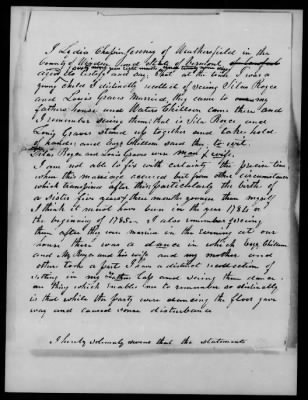 I Lodisa Chapin formerly of Weathersfield in the
county of Windsor and State of Vermont
aged do testify and say, That at the time, I was a
young child I distinctly recollect of seeing Silas Royce
and Lovis Graves Married, they came to my
fathers house and Waters Chillson came there and
I remember seeing them that is Silas Royce and
Lovis Graves stand up together and take hold
of hands, and Esqr Chillson said they to wit.
Silas Royce and Lovis Graves were man & wife
I am not able to fix with certainty the precise time
when this marriage occured but from other circumstances
which transpired after this, particularly the birth of
a Sister five years & three months younger than myself
I think it would have been in the year 1784 or in
the beginning of 1785. I also remember seeing
them after this were married in the evening at our
house there was a dance in which Esqr Chillson
and Mr Royce and his wife and my mother and
others took a part I have a distinct recollection of
sitting in my Father's lap and seeing them dance.
one thing which enables me to remember so distinctly
is that while the party were dancing the floor gave
way and caused some disturbance
I hereby solemnly swear that the statements